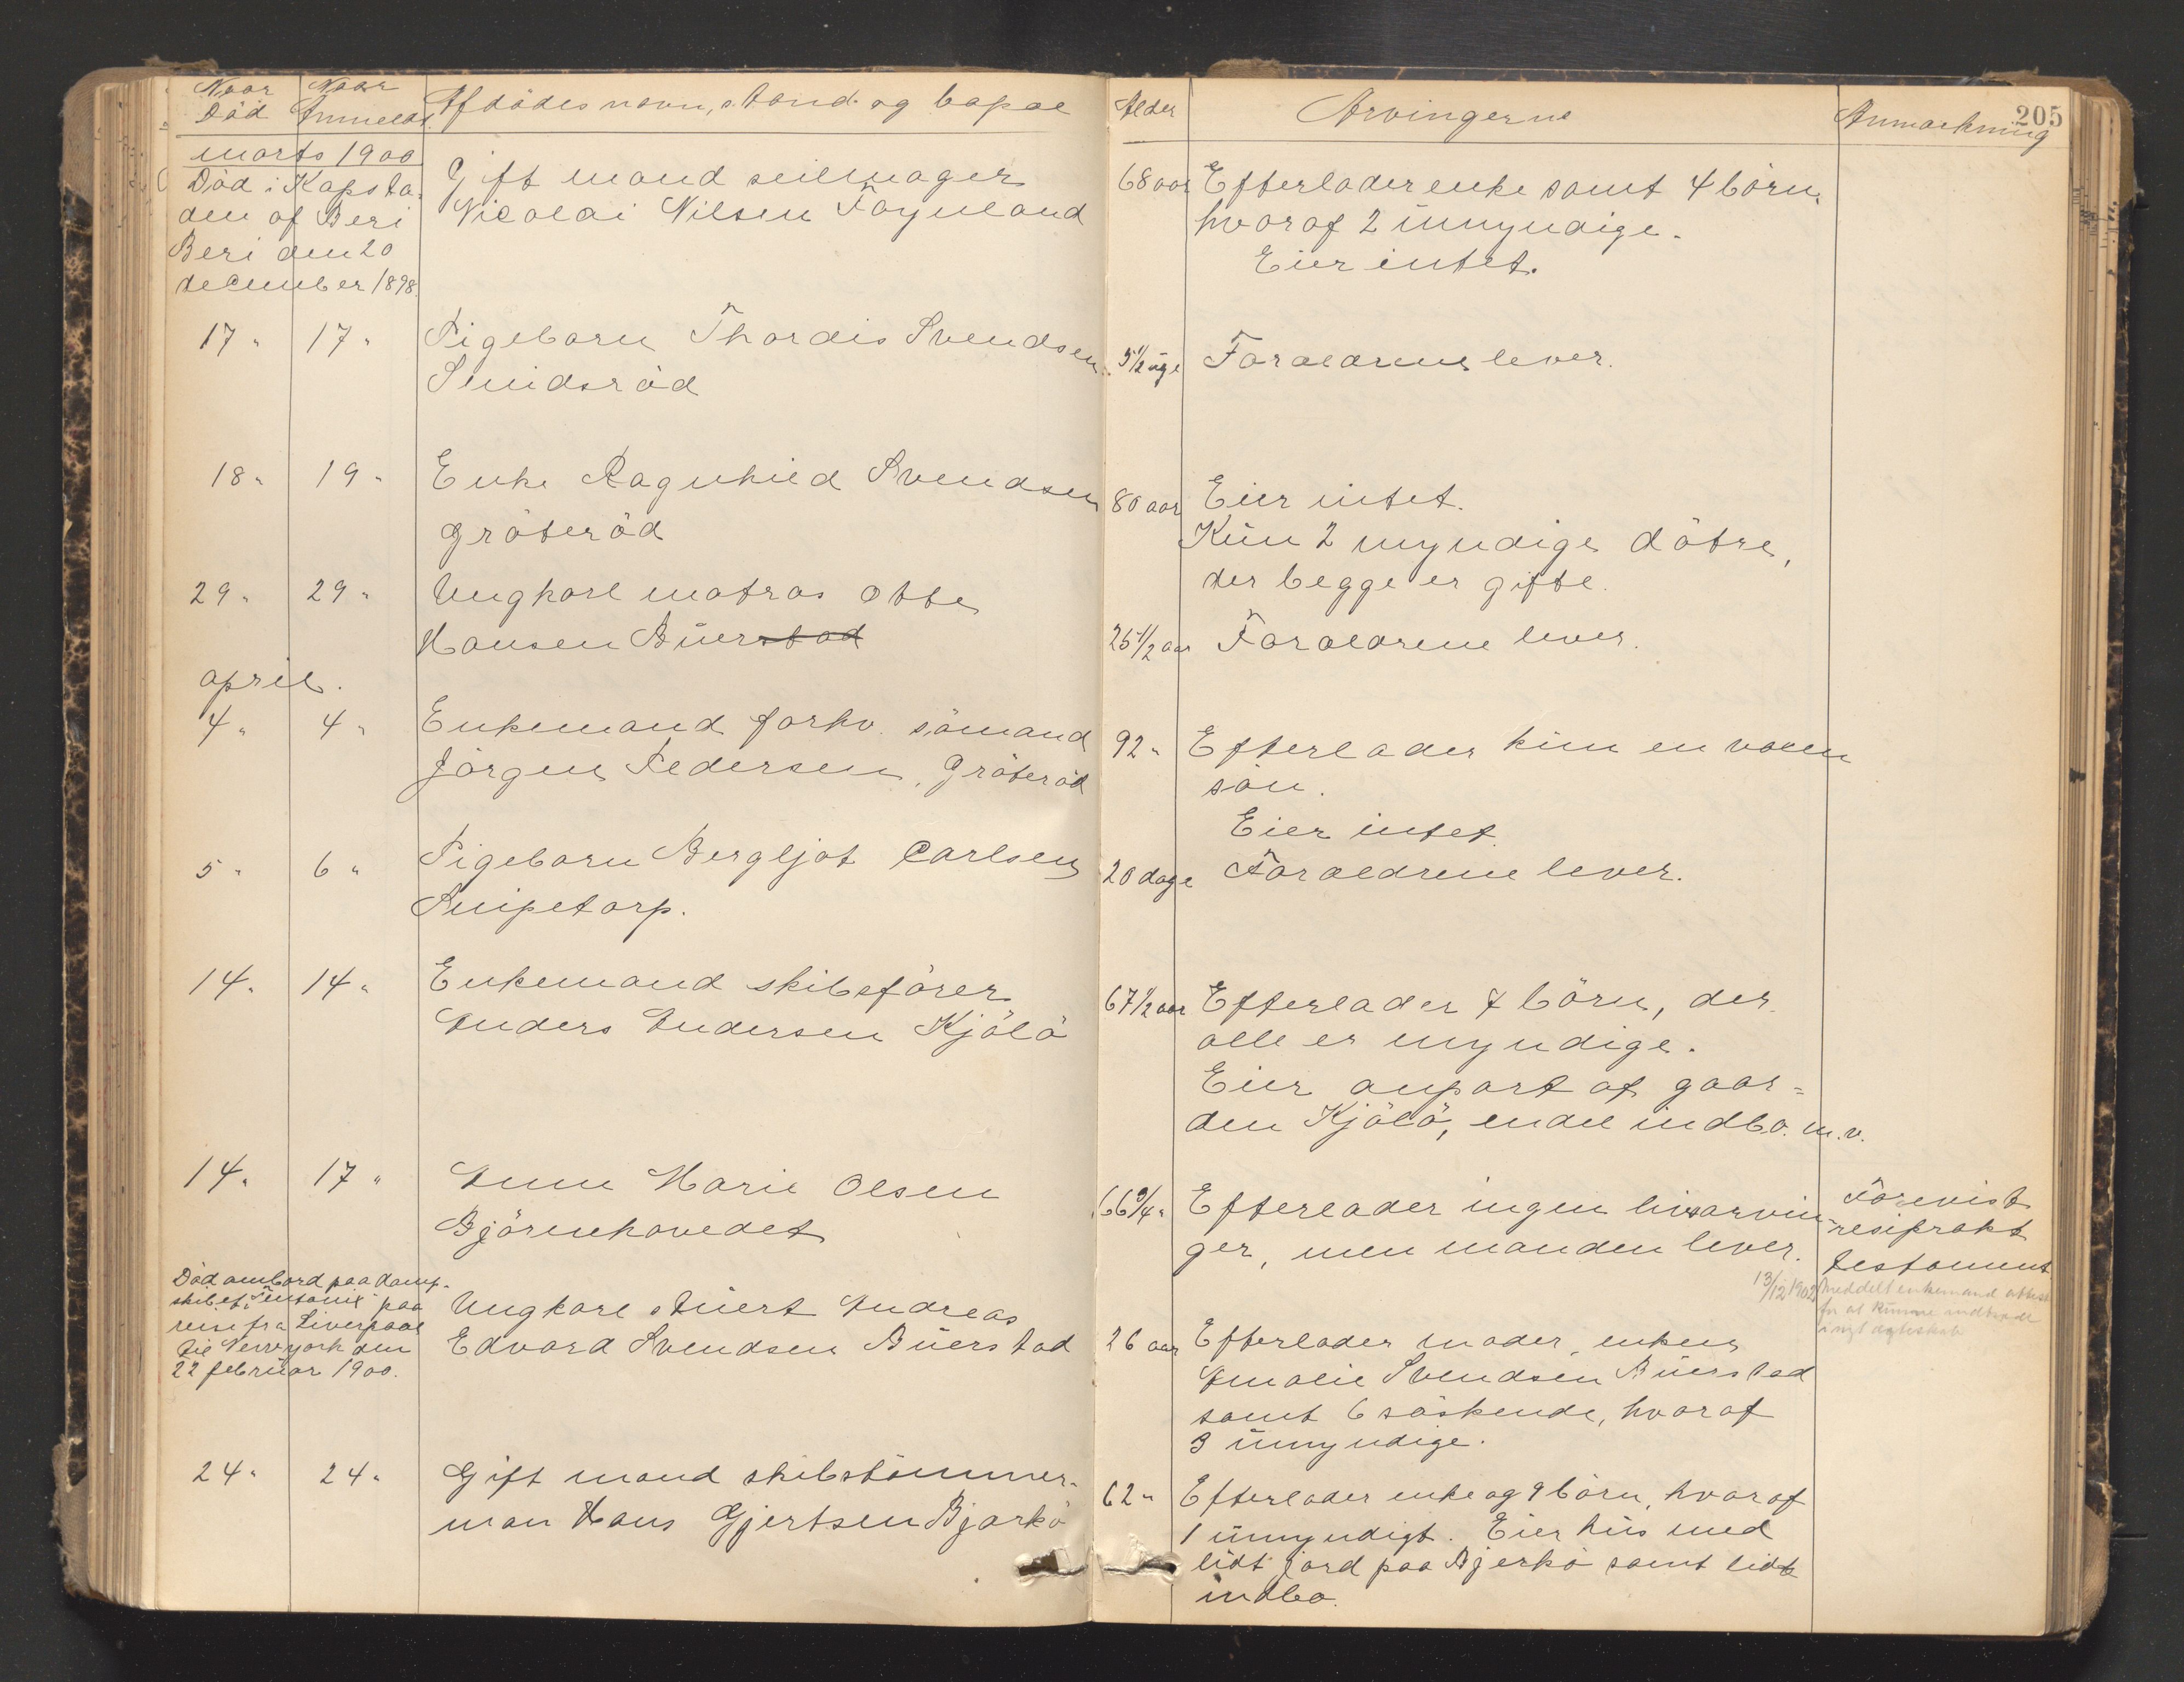 Naar Død
Naar Anmeldt
Afdödes navn, stand og bopæl
Alder
Arvingerne
Anmærkning
205
marts 1900
Död i Kapsta-
den af Beri
Beri den 20
december 1898.
Gift mand seilmager
Nicolai Nilsen Föynland
68 aar
Efterlader enke samt 4 börn,
hvoraf 2 umyndige.
Eier intet.
17 " 17 "
Pigebarn Thordis Svendsen
Smidsröd
5 1/2 uge
Foraeldrene lever.
18 " 19 "
Enke Ragnhild Svendsen
Gröteröd
80 aar
Eier intet.
Kun 2 myndige dötre,
der begge er gifte.
29 " 29 "
Ungkarl matros Otto
Hansen Buerstad
25 1/2 aar
Foraeldrene lever.
april.
4 " 4 "
Enkemand forhv. sömand
Jörgen Pedersen, Gröteröd
92 "
Efterlader kun en voxen
sön.
Eier intet.
5 " 6 "
Pigebarn Bergljot Carlsen
Snipetorp.
20 dage
Foraeldrene lever.
14 " 14 "
Enkemand skibsförer
Anders Andersen Kjölö
67 1/2 aar
Efterlader 7 börn, der
alle er myndige.
Eier anpart af gaar=
den Kjölö, endel indbo. m.v.
14 " 17 "
Anne Marie Olsen
Björnehovedet
66 3/4 "
Efterlader ingen livsarvin-
ger, men manden lever.
Forevist
resiprokt
testament
13/12 1902 Meddelt enkemand attest
for at kunne indtræde
i nyt ægteskab
Död ombord paa damp-
skibet paa
reise fra Liverpool
til Newyork den
22 februar 1900.
Ungkarl stuert Andreas
Edvard Svendsen Buerstad
26 aar
Efterlader moder, enken
Amalie Svendsen Buerstad
samt 6 söskende, hvoraf
3 umyndige.
24 " 24 "
Gift mand skibstömmer-
man Hans Gjertsen Bjerkö
62 "
Efterlader enke og 9 börn, hvoraf
1 umyndigt. Eier hus med
lidt jord paa Bjerkö samt lidt
indbo.